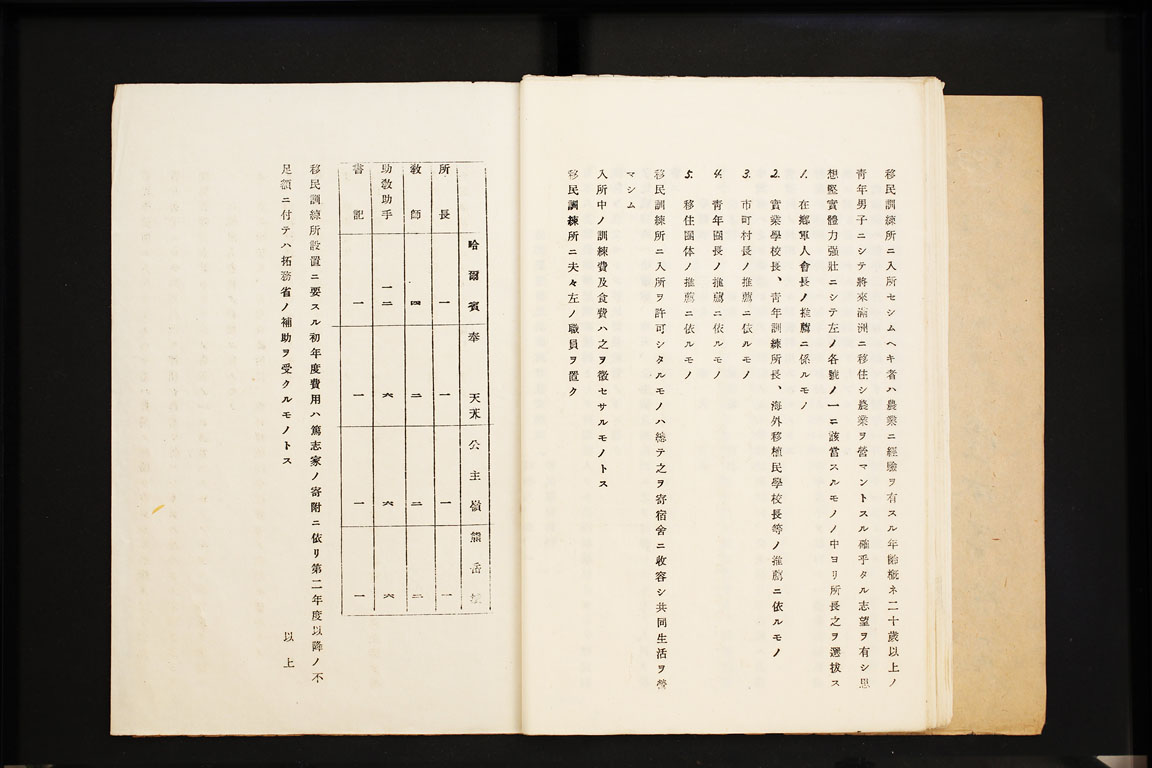 移民訓練所ニ入所セシムヘキ者ハ農業ニ經驗ヲ有スル年齡槪ネ二十歲以上ノ
靑年男子ニシテ將來滿洲ニ移住シ農業ヲ營マントスル確乎タル志望ヲ有シ思
想堅實體力强壯ニシテ左ノ各號ノ一ニ該當スルモノノ中ヨリ所長之ヲ選拔ス
1. 在鄕軍人會長ノ推薦ニ係ルモノ
2. 實業學校長、靑年訓練所長、海外移植民學校長等ノ推薦ニ依ルモノ
3. 市町村長ノ推薦ニ依ルモノ
4. 靑年團長ノ推薦ニ依ルモノ
5. 移住團体ノ推薦ニ依ルモノ
移民訓練所ニ入所ヲ許可シタルモノハ總テ之ヲ寄宿舍ニ收容シ共同生活ヲ營
マシム
入所中ノ訓練費及食費ハ之ヲ徵セサルモノトス
移民訓練所ニ夫々左ノ職員ヲ置ク
哈爾賓 奉天 公主嶺 熊岳城
所長 一 一 一 一
敎師 四 二 二 二
助敎助手 一二 六 六 六
書記 一 一 一 一
移民訓練所設置ニ要スル初年度費用ハ篤志家ノ寄附ニ依リ第二年度以降ノ不
足額ニ付テハ拓務省ノ補助ヲ受クルモノトス
以上